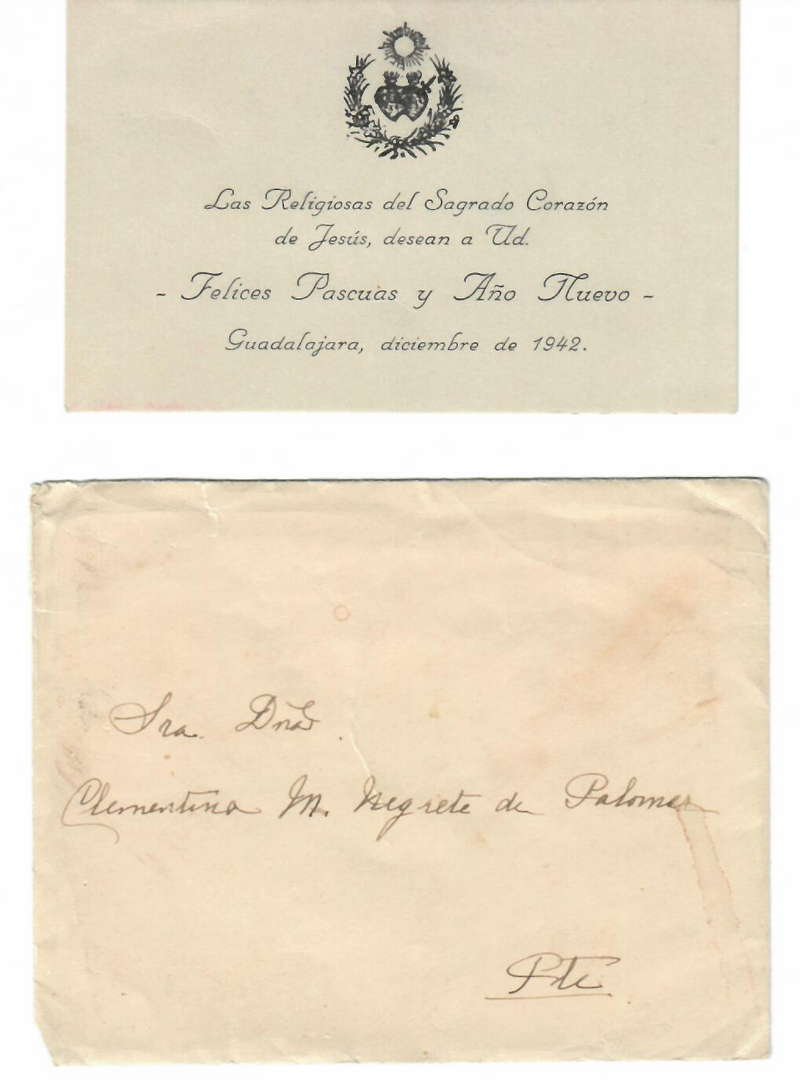 Las Religiosas del Sagrado Corazón
de Jesús, desean a Ud.
- Felices Pascuas y Año Nuevo -
Guadalajara, diciembre de 1942.
Sra. Dña.
Clementina M. Negrete de Palomar
Pte